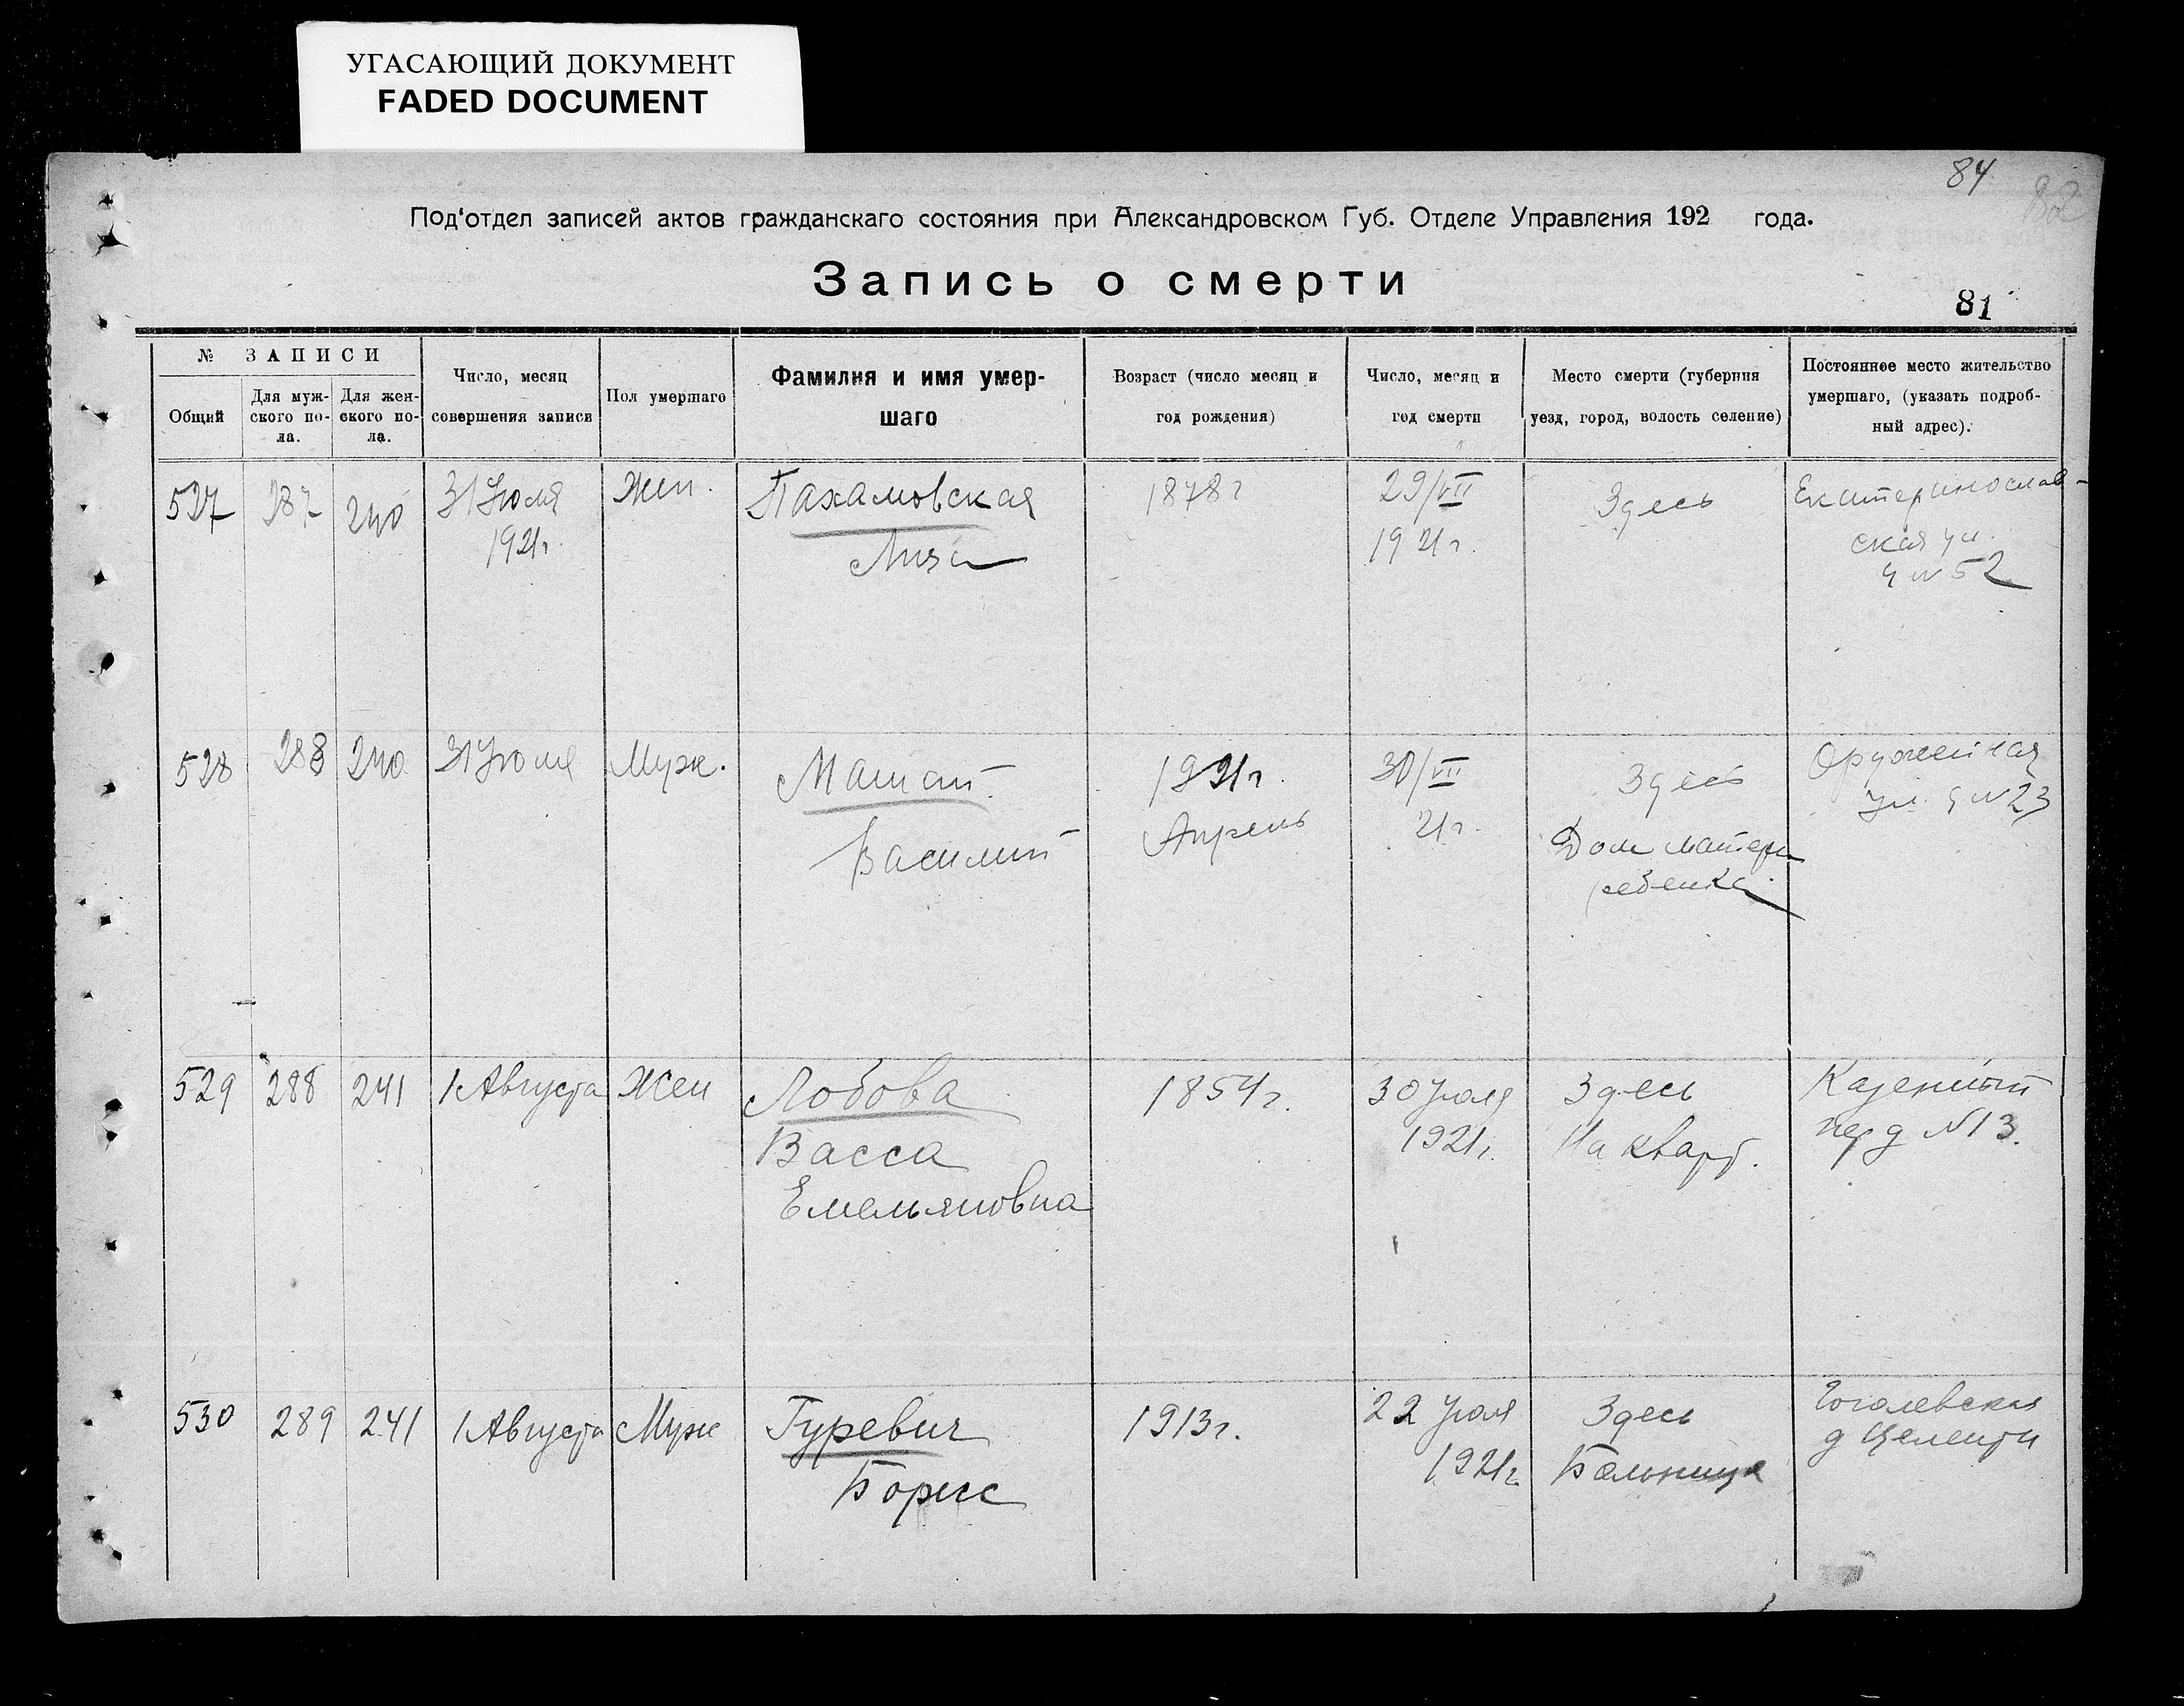 УГАСАЮЩИЙ ДОКУМЕНТ
FADED DOCUMENT
84
82
Под'отдел записей актов гражданскаго состояния при Александровском Губ. Отделе Управления 192 года.
Запись о смерти
81
№ ЗАПИСИ
Общий
Для муж-
ского по-
ла.
Для жен-
ского по-
ла.
Число, месяц
совершения записи
Пол умершаго
Фамилия и имя умер-
шаго
Возраст (число месяц и
год рождения)
Число, месяц и
год смерти
Место смерти (губерния
уезд, город, волость селение)
Постоянное место жительство
умершаго, (указать подроб-
ный адрес).
527
287
240
31 Июля
1921г.
Жен.
Пахамовская
Лиза
1878г
29/VII
1921г.
Здесь
Екатеринослав-
ская ул.
д №52
528
288
240
31 Июля
Муж.
Василий
1921г.
Апрель
30/VII
21г.
Здесь
Дом матери
ребенка
Оружейная
ул. д №23
529
288
241
1 Августа
Жен
Лобова
Васса
Емельяновна
1854г.
30 Июля
1921г.
Здесь
На кварт.
Казенный
пер д №13.
530
289
241
1 Августа
Муж
Гуревич
Борис
1913г.
22 Июля
1921г.
Здесь
Больница
Гоголевская
д